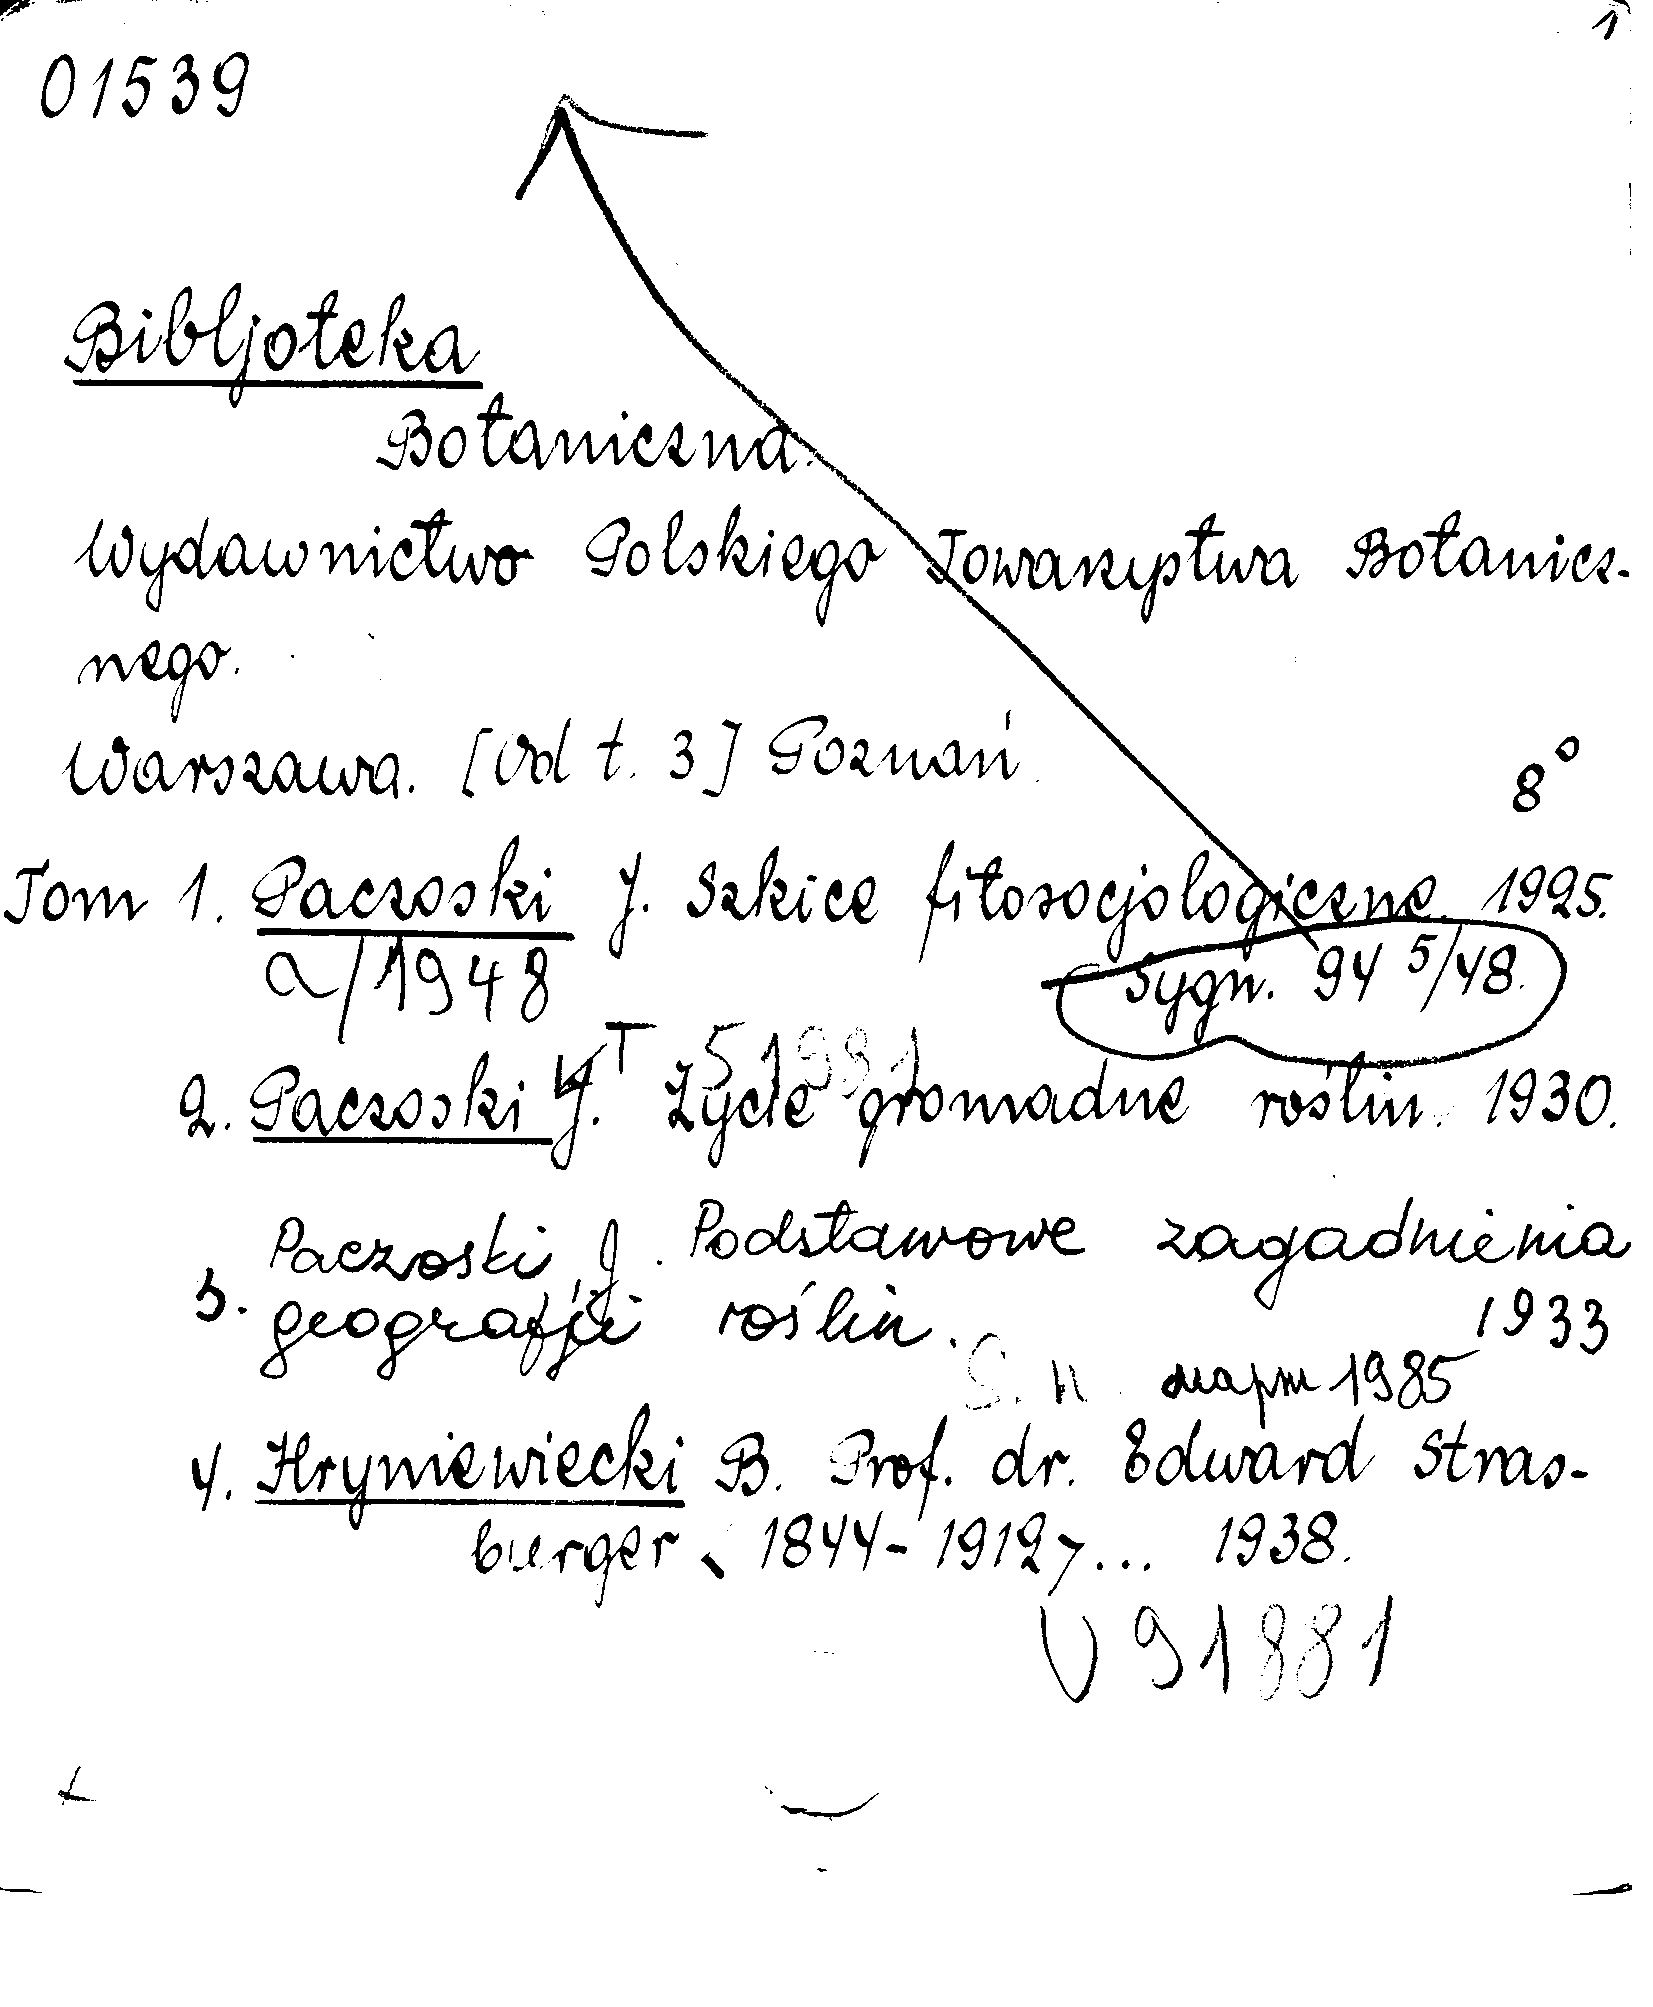 1
01539
Bibljoteka
Botaniczna.
Wydawnictwo Polskiego Towarzystwa Botanicz-
nego.
Warszawa. [Od t. 3] Poznań.
8°
Tom 1. Paczoski J. Szkice fitosocjologiczne. 1925.
a/1948 Sygn. 94 5/48.
2. Paczoski J. Życie gromadne roślin. 1930.
Paczoski J. Podstawowe zagadnienia
3. geografji roślin. 1933
1985
4. Hryniewiecki B. Prof. dr. Edward Stras-
burger, 1844-1912, ... 1938.
91881